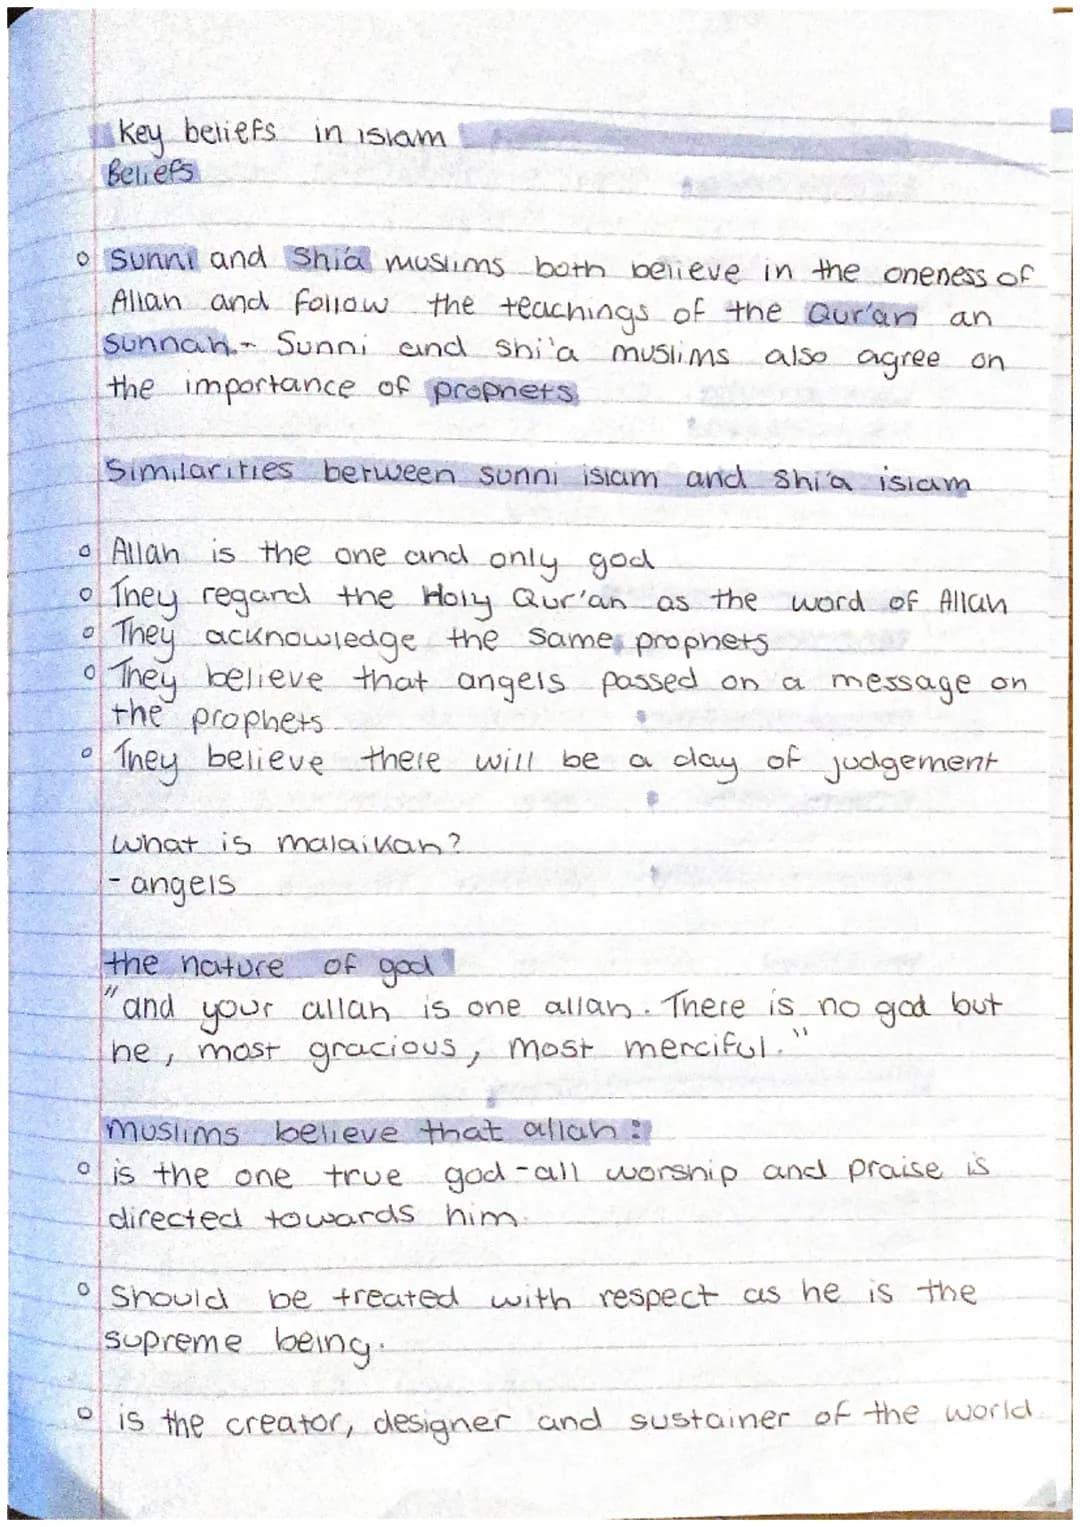 Key beliefs in islam
Beliefs
Sunni and Shi'a muslims both believe in the oneness of
Allah and follow the teachings of the Qur'an an
sunnah.- Sunni and shi'a muslims also agree on
the importance of prophets
Similarities between sunni islam and shi'a islam
Allah is the one and only god
They regard the Holy Qur'an as the word of Allah
They acknowledge the same prophets
They believe that angels passed on a message on
the prophets
They believe there will be a day of judgement
what is malaikah?
- angels
the nature of god
"and your allah is one allah. There is no god but
he, most gracious, most merciful."
muslims believe that allah:
is the one true god - all worship and praise is
directed towards him.
Should be treated with respect as he is the
supreme being.
is the creator, designer and sustainer of the world